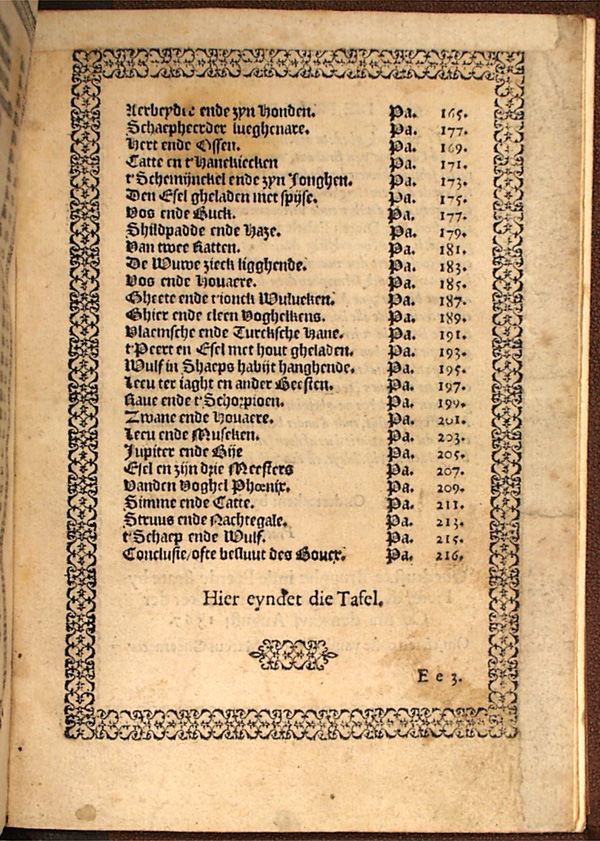 Aerbeyder ende zyn Honden. Pa. 165.
Schaepheerder lueghenare. Pa. 177.
Hert ende Ossen. Pa. 169.
Catte en t'Hanekiecken Pa. 171.
t'Scheminckel ende zyn Jonghen. Pa. 173.
Den Esel gheladen met spijse. Pa. 175.
Vos ende Buck. Pa. 177.
Shildpadde ende Haze. Pa. 179.
Van twee Ratten. Pa. 181.
De Wuwe zieck ligghende. Pa. 183.
Vos ende Houaere. Pa. 185.
Gheete ende t'ionck Wulueken. Pa. 187.
Ghier ende cleen Voghelkens. Pa. 189.
Vlaemsche ende Turcksche Hane. Pa. 191.
t'Peert en Esel met hout gheladen. Pa. 193.
Wulf in Shaeps habijt hanghende. Pa. 195.
Leeu ter iaght en ander Beesten. Pa. 197.
Raue ende t'Schorpioen. Pa. 199.
Zwane ende Houaere. Pa. 201.
Leeu ende Museken. Pa. 203.
Jupiter ende Bije Pa. 205.
Esel en zijn drie Meesters Pa. 207.
Vanden Voghel Phœnix. Pa. 209.
Simme ende Catte. Pa. 211.
Struus ende Nachtegale. Pa. 213.
t'Schaep ende Wulf. Pa. 215.
Conclusie/ofte besluut des Boucx. Pa. 216.
Hier eyndet die Tafel.
E e 3.